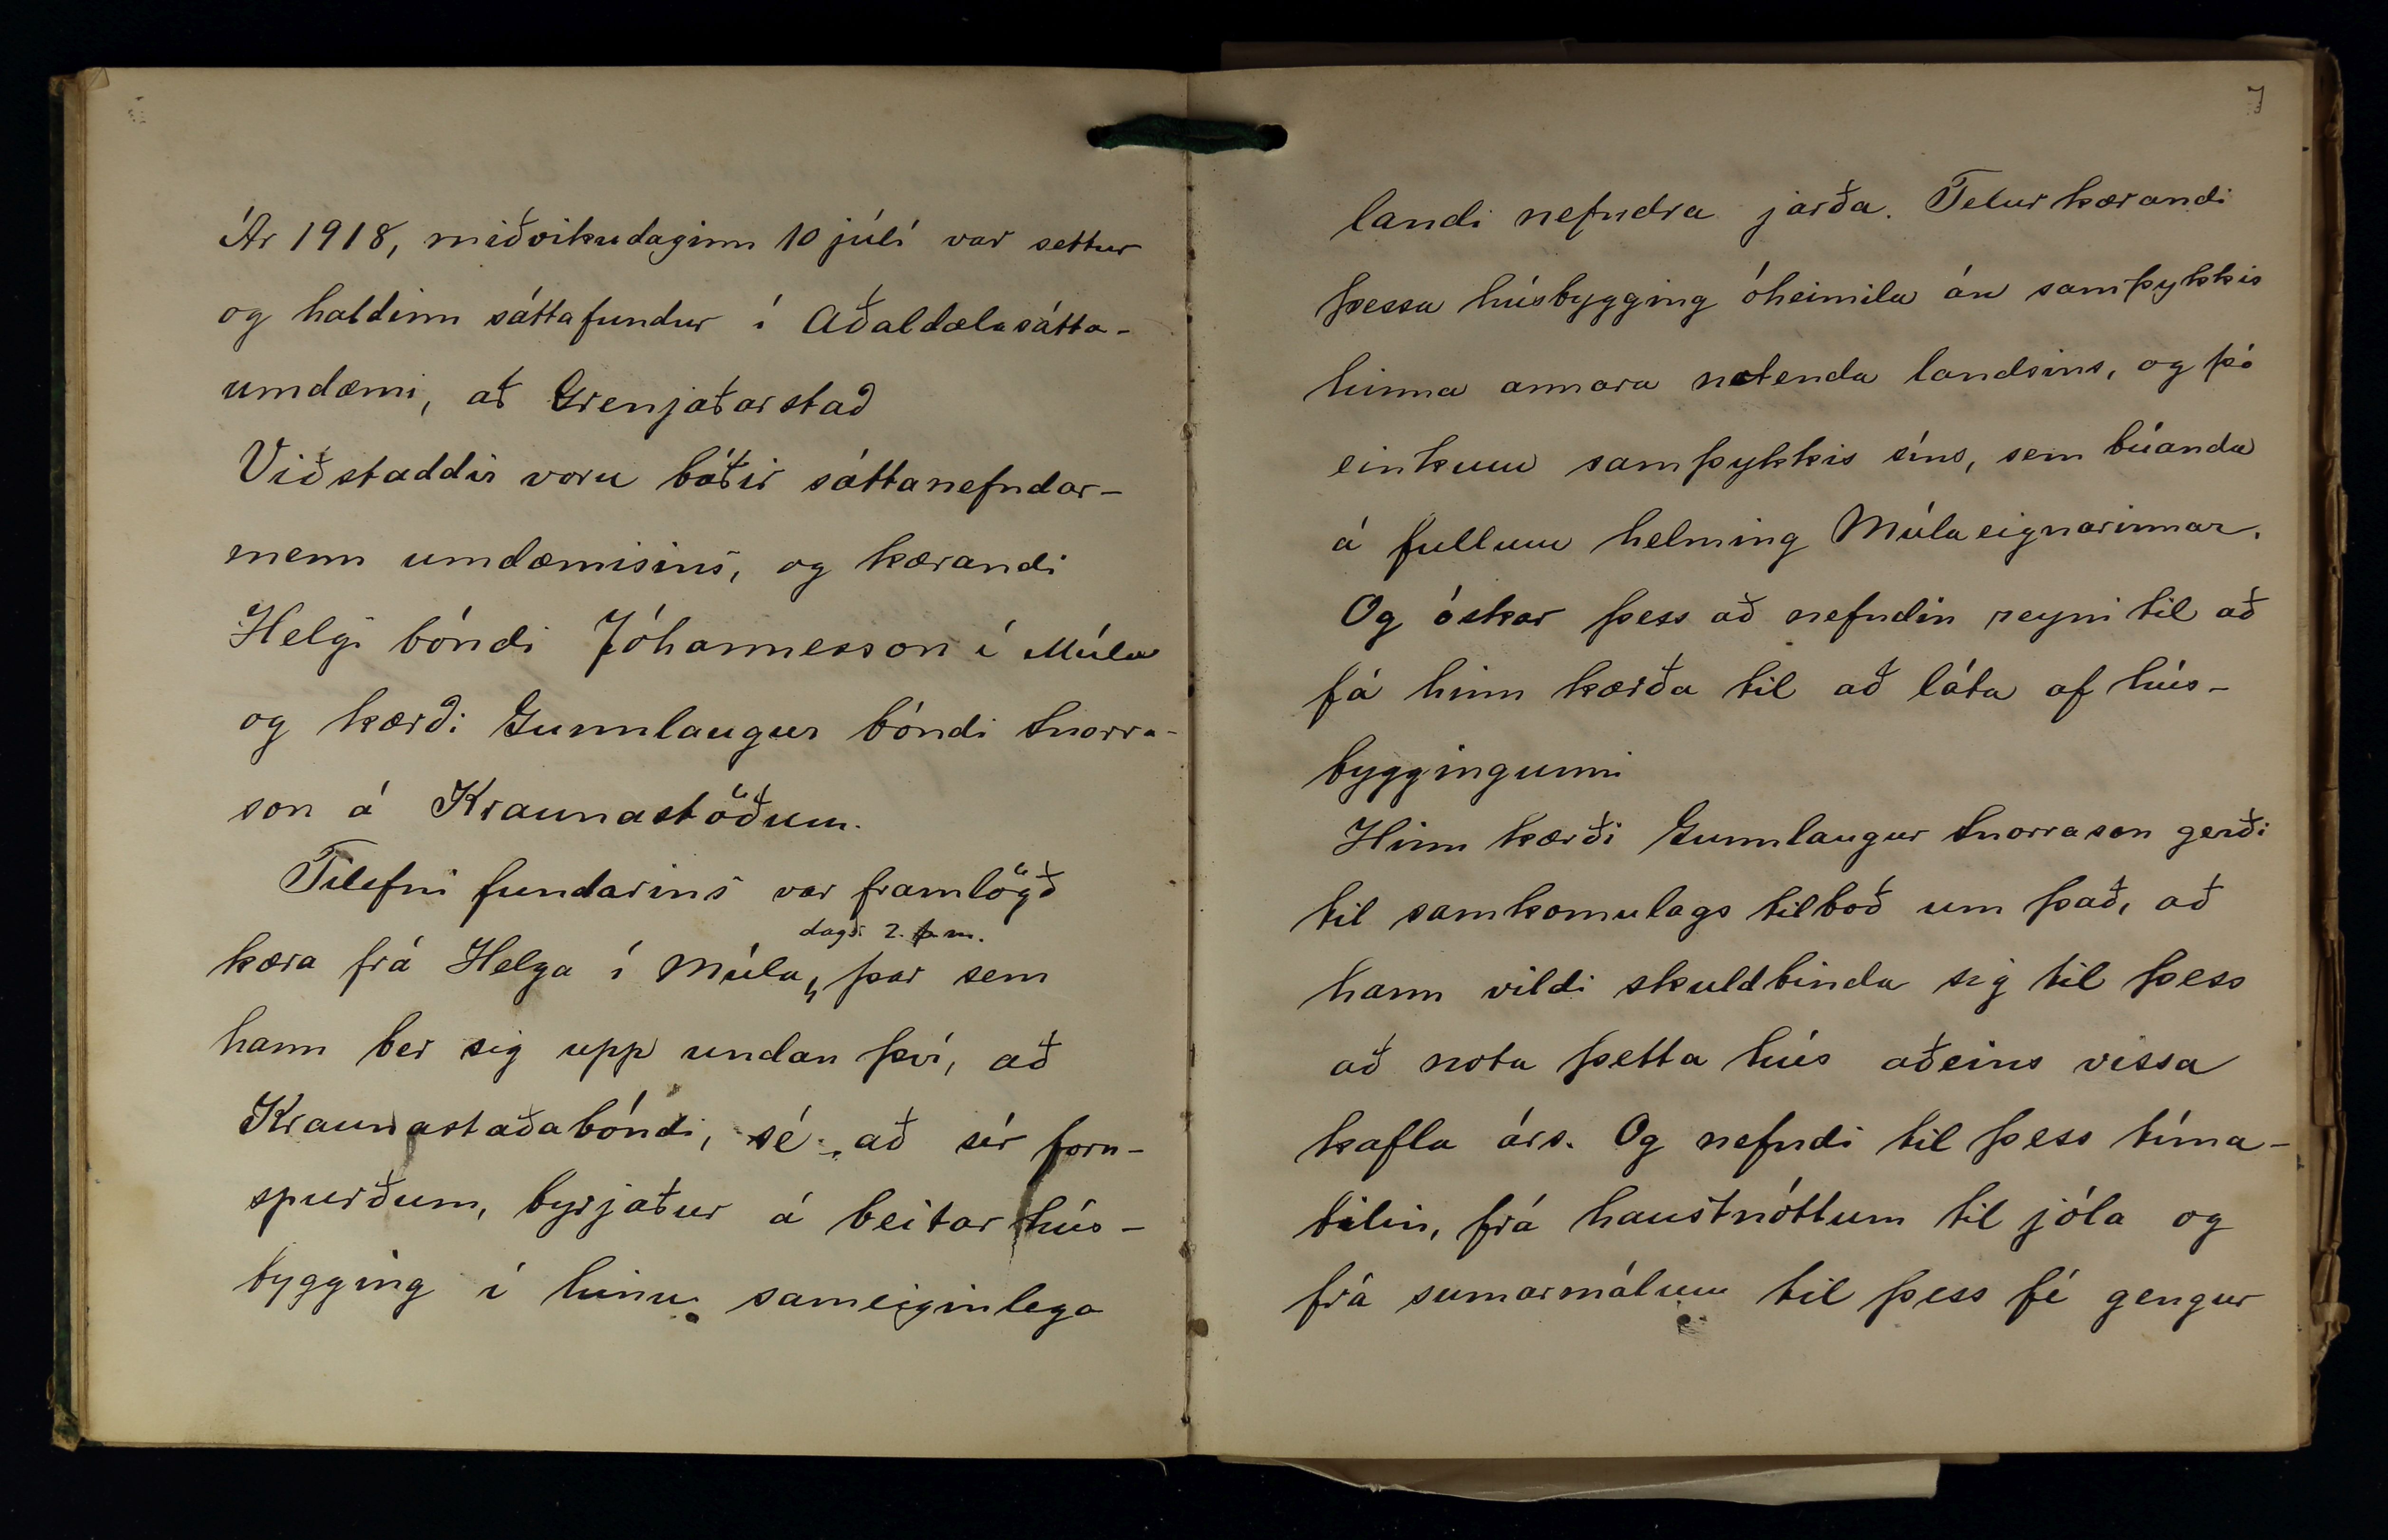 Ár 1918, miðvikudaginn 10 júlí var settur
og haldinn sáttafundur í Aðaldælasátta-
umdæmi, að Grenjaðarstað
Viðstaddir voru báðir sáttanefndar-
menn umdæmisins, og kærandi
Helgi bóndi Jóhannesson í Múla
og kærði Gunnlaugur bóndi Snorra-
son á Kraunastöðum.
Tilefni fundarins var framlögð
dags. 2. þ. m.
kæra frá Helga í Múla, þar sem
hann ber sig upp undan því, að
Kraunastaðabóndi, sé að sér forn-
spurðum, byrjaður á beitarhús-
bygging í hinu sameiginlega
7
landi nefndra jarða. Telur kærandi
þessa húsbygging óheimila án samþykkis
hinna annara notenda landsins, og þó
einkum samþykkis síns, sem búanda
á fullum helming Múlaeignarinnar.
Og óskar þess að nefndin reyni til að
fá hinn kærða til að láta af hús-
byggingunni
Hinn kærði Gunnlaugur Snorrason gerði
til samkomulags tilboð um það, að
hann vildi skuldbinda sig til þess
að nota þetta hús aðeins vissa
kafla árs. Og nefndi til þess tíma-
bilin, frá haustnóttum til jóla og
frá sumarmálum til þess fé gengur